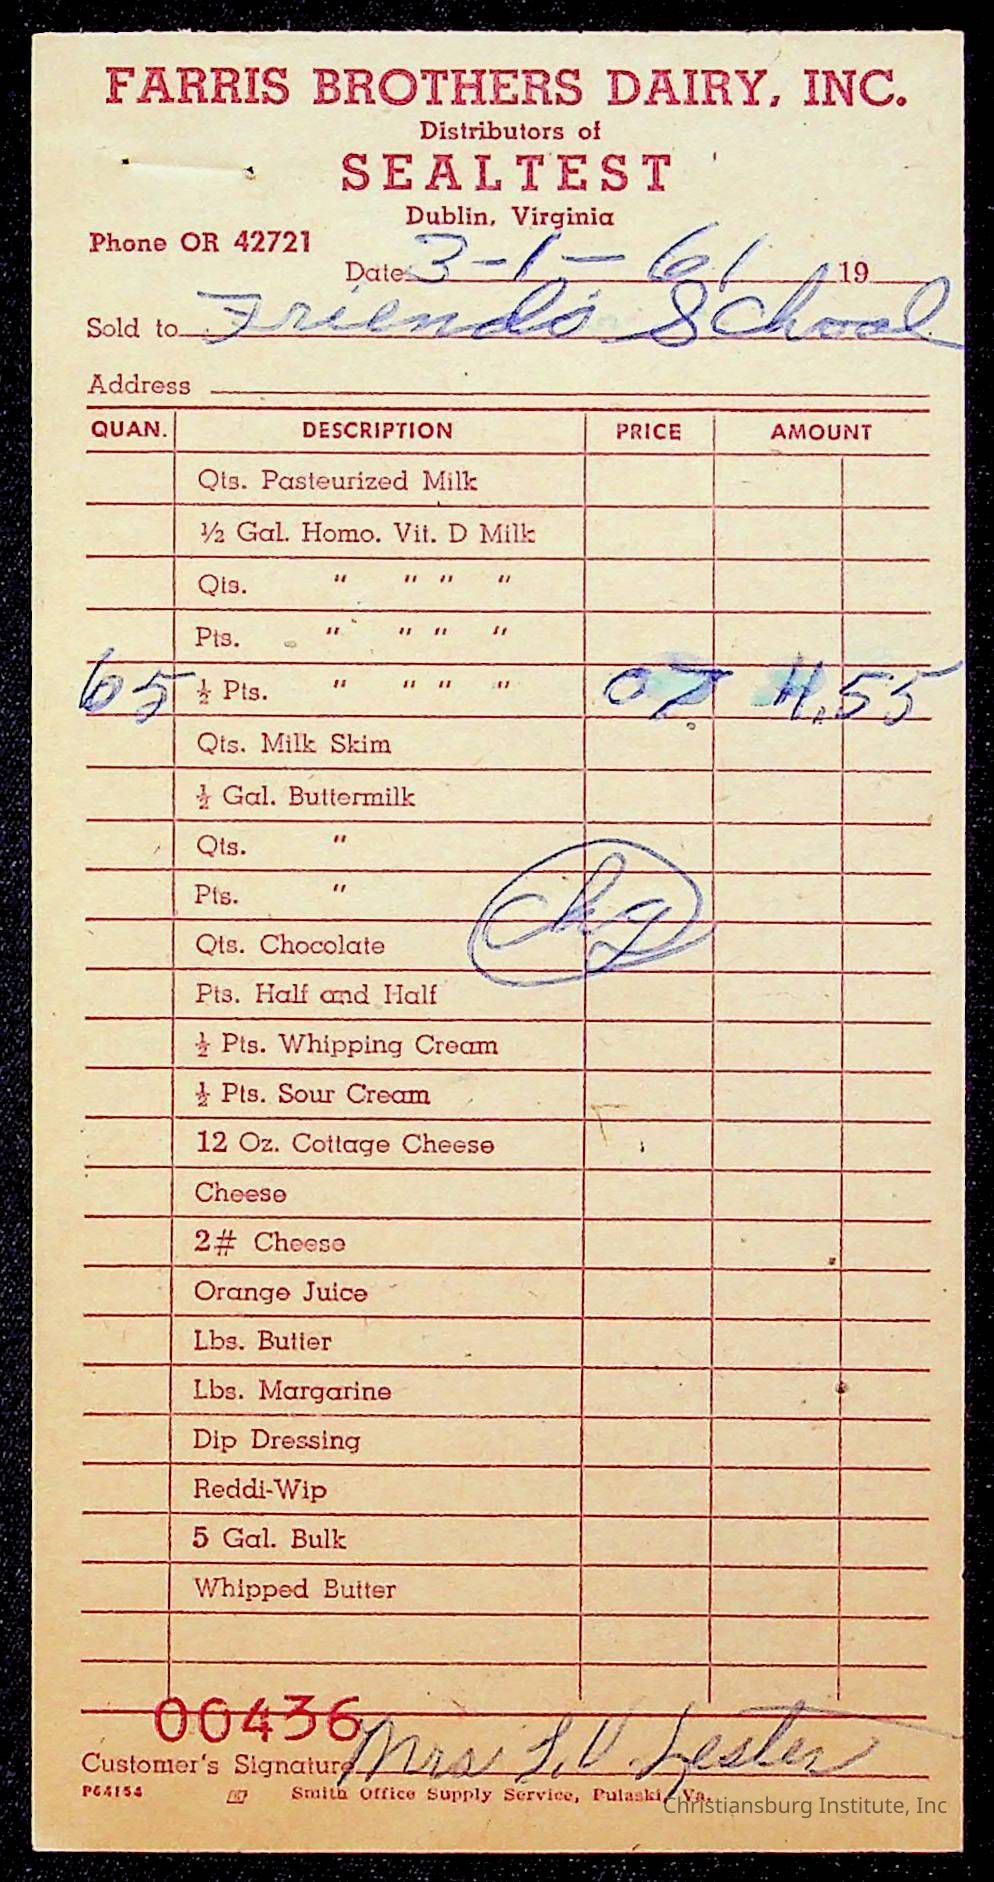 FARRIS BROTHERS DAIRY, INC.
Distributors of
SEALTEST
Dublin, Virginia
Phone OR 42721
Date 3-1-61 19
Sold to Friends School
Address
QUAN. DESCRIPTION PRICE AMOUNT
Qts. Pasteurized Milk
½ Gal. Homo. Vit. D Milk
Qts. " " " "
Pts. " " " "
65 ½ Pts. " " " " 07 4.55
Qts. Milk Skim
½ Gal. Buttermilk
Qts. "
Pts. "
chg
Qts. Chocolate
Pts. Half and Half
½ Pts. Whipping Cream
½ Pts. Sour Cream
12 Oz. Cottage Cheese
Cheese
2# Cheese
Orange Juice
Lbs. Butter
Lbs. Margarine
Dip Dressing
Reddi-Wip
5 Gal. Bulk
Whipped Butter
00436
Customer's Signature Mrs L.V. Lester
P64154 Smith Office Supply Service, Pulaski, Va.
Christiansburg Institute, Inc